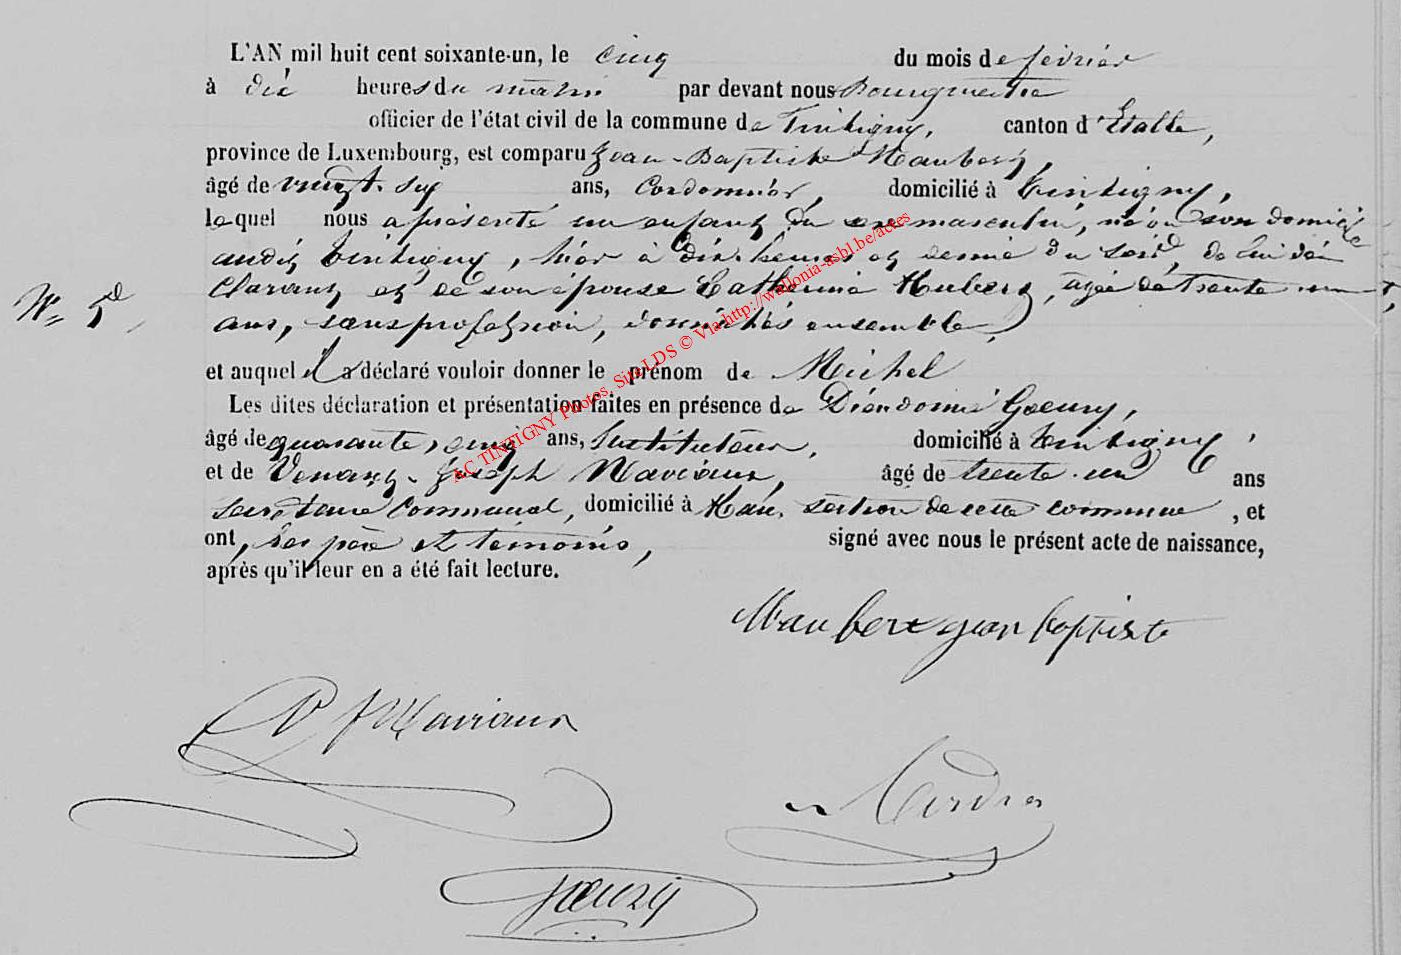 L'AN mil huit cent soixante-un, le cinq du mois de février
à dix heures du matin par devant nous Bourgmestre
officier de l'état civil de la commune de Tintigny, canton d'Etalle,
province de Luxembourg, est comparu Jean-Baptiste Maubert,
âgé de vingt-six ans, Cordonnier, domicilié à Tintigny,
lequel nous a présenté un enfant du sexe masculin, né en son domicile
audit Tintigny, hier à dix heures et demie du soir, de lui dé
clarant et de son épouse Catherine Hubert, âgée de trente
ans, sans profession, domiciliés ensemble,
N° 5
et auquel il a déclaré vouloir donner le prénom de Michel
Les dites déclaration et présentation faites en présence de Dieudonné Goeury,
âgé de quarante-cinq ans, Instituteur, domicilié à Tintigny,
et de Venant-Joseph Maviaux, âgé de trente-un ans
Secrétaire Communal, domicilié à Han, section de cette commune, et
ont, les père et témoins, signé avec nous le présent acte de naissance,
après qu'il leur en a été fait lecture.
Maubert jean baptiste
V J Maviaux
Goeury
AC TINTIGNY Photos. Site LDS © Via http://wallonia-asbl.be/actes